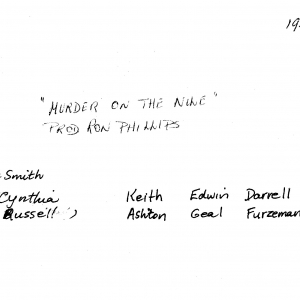 19
"MURDER ON THE NILE"
PROD RON PHILLIPS
Smith
Cynthia Keith Edwin Darrell
Russell) Ashton Geal Furzeman